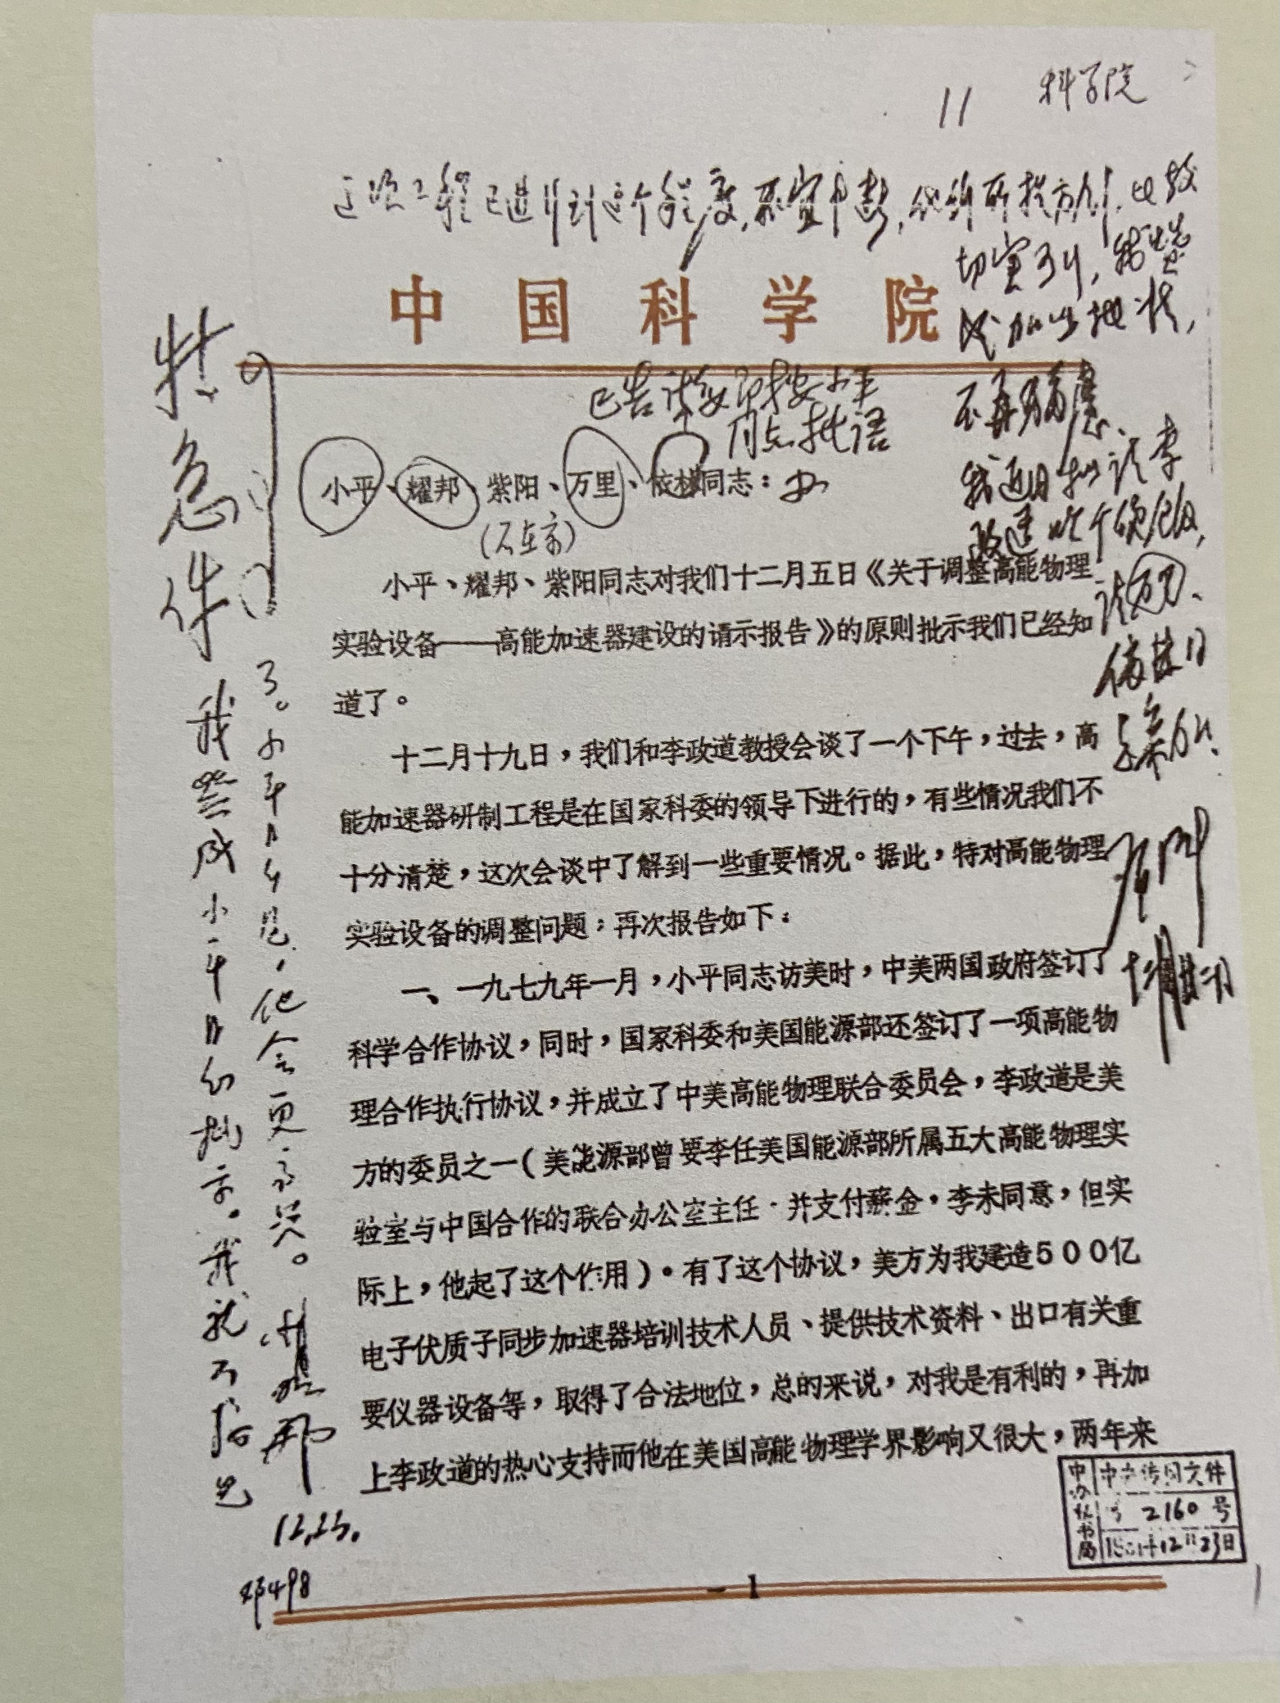 11
科学院
这项工程已进行到这个程度,不宜中断,他们所提方针,比较
切实可行,我赞
成加以批准,
不再犹豫。
我近日拟见李
政道
请万里、
依林同
志参加。
邓小平
十二月廿二日
中国科学院
已告谷羽即按小平
同志批语办
特急件
小平、耀邦、紫阳、万里、依林同志:
(不在京)
小平、耀邦、紫阳同志对我们十二月五日《关于调整高能物理
实验设备——高能加速器建设的请示报告》的原则批示我们已经知
道了。
十二月十九日,我们和李政道教授会谈了一个下午,过去,高
能加速器研制工程是在国家科委的领导下进行的,有些情况我们不
十分清楚,这次会谈中了解到一些重要情况。据此,特对高能物理
实验设备的调整问题;再次报告如下:
一、一九七九年一月,小平同志访美时,中美两国政府签订了
科学合作协议,同时,国家科委和美国能源部还签订了一项高能物
理合作执行协议,并成立了中美高能物理联合委员会,李政道是美
方的委员之一(美能源部曾要李任美国能源部所属五大高能物理实
验室与中国合作的联合办公室主任·并支付薪金,李未同意,但实
际上,他起了这个作用)。有了这个协议,美方为我建造500亿
电子伏质子同步加速器培训技术人员、提供技术资料、出口有关重
要仪器设备等,取得了合法地位,总的来说,对我是有利的,再加
上李政道的热心支持而他在美国高能物理学界影响又很大,两年来
我赞成小平同的批示。我就不接见
了。小平同志见,他会更高兴。耀邦
12.23.
邓498
中办秘书局
中央传阅文件
2160号
1981年12月23日
-1